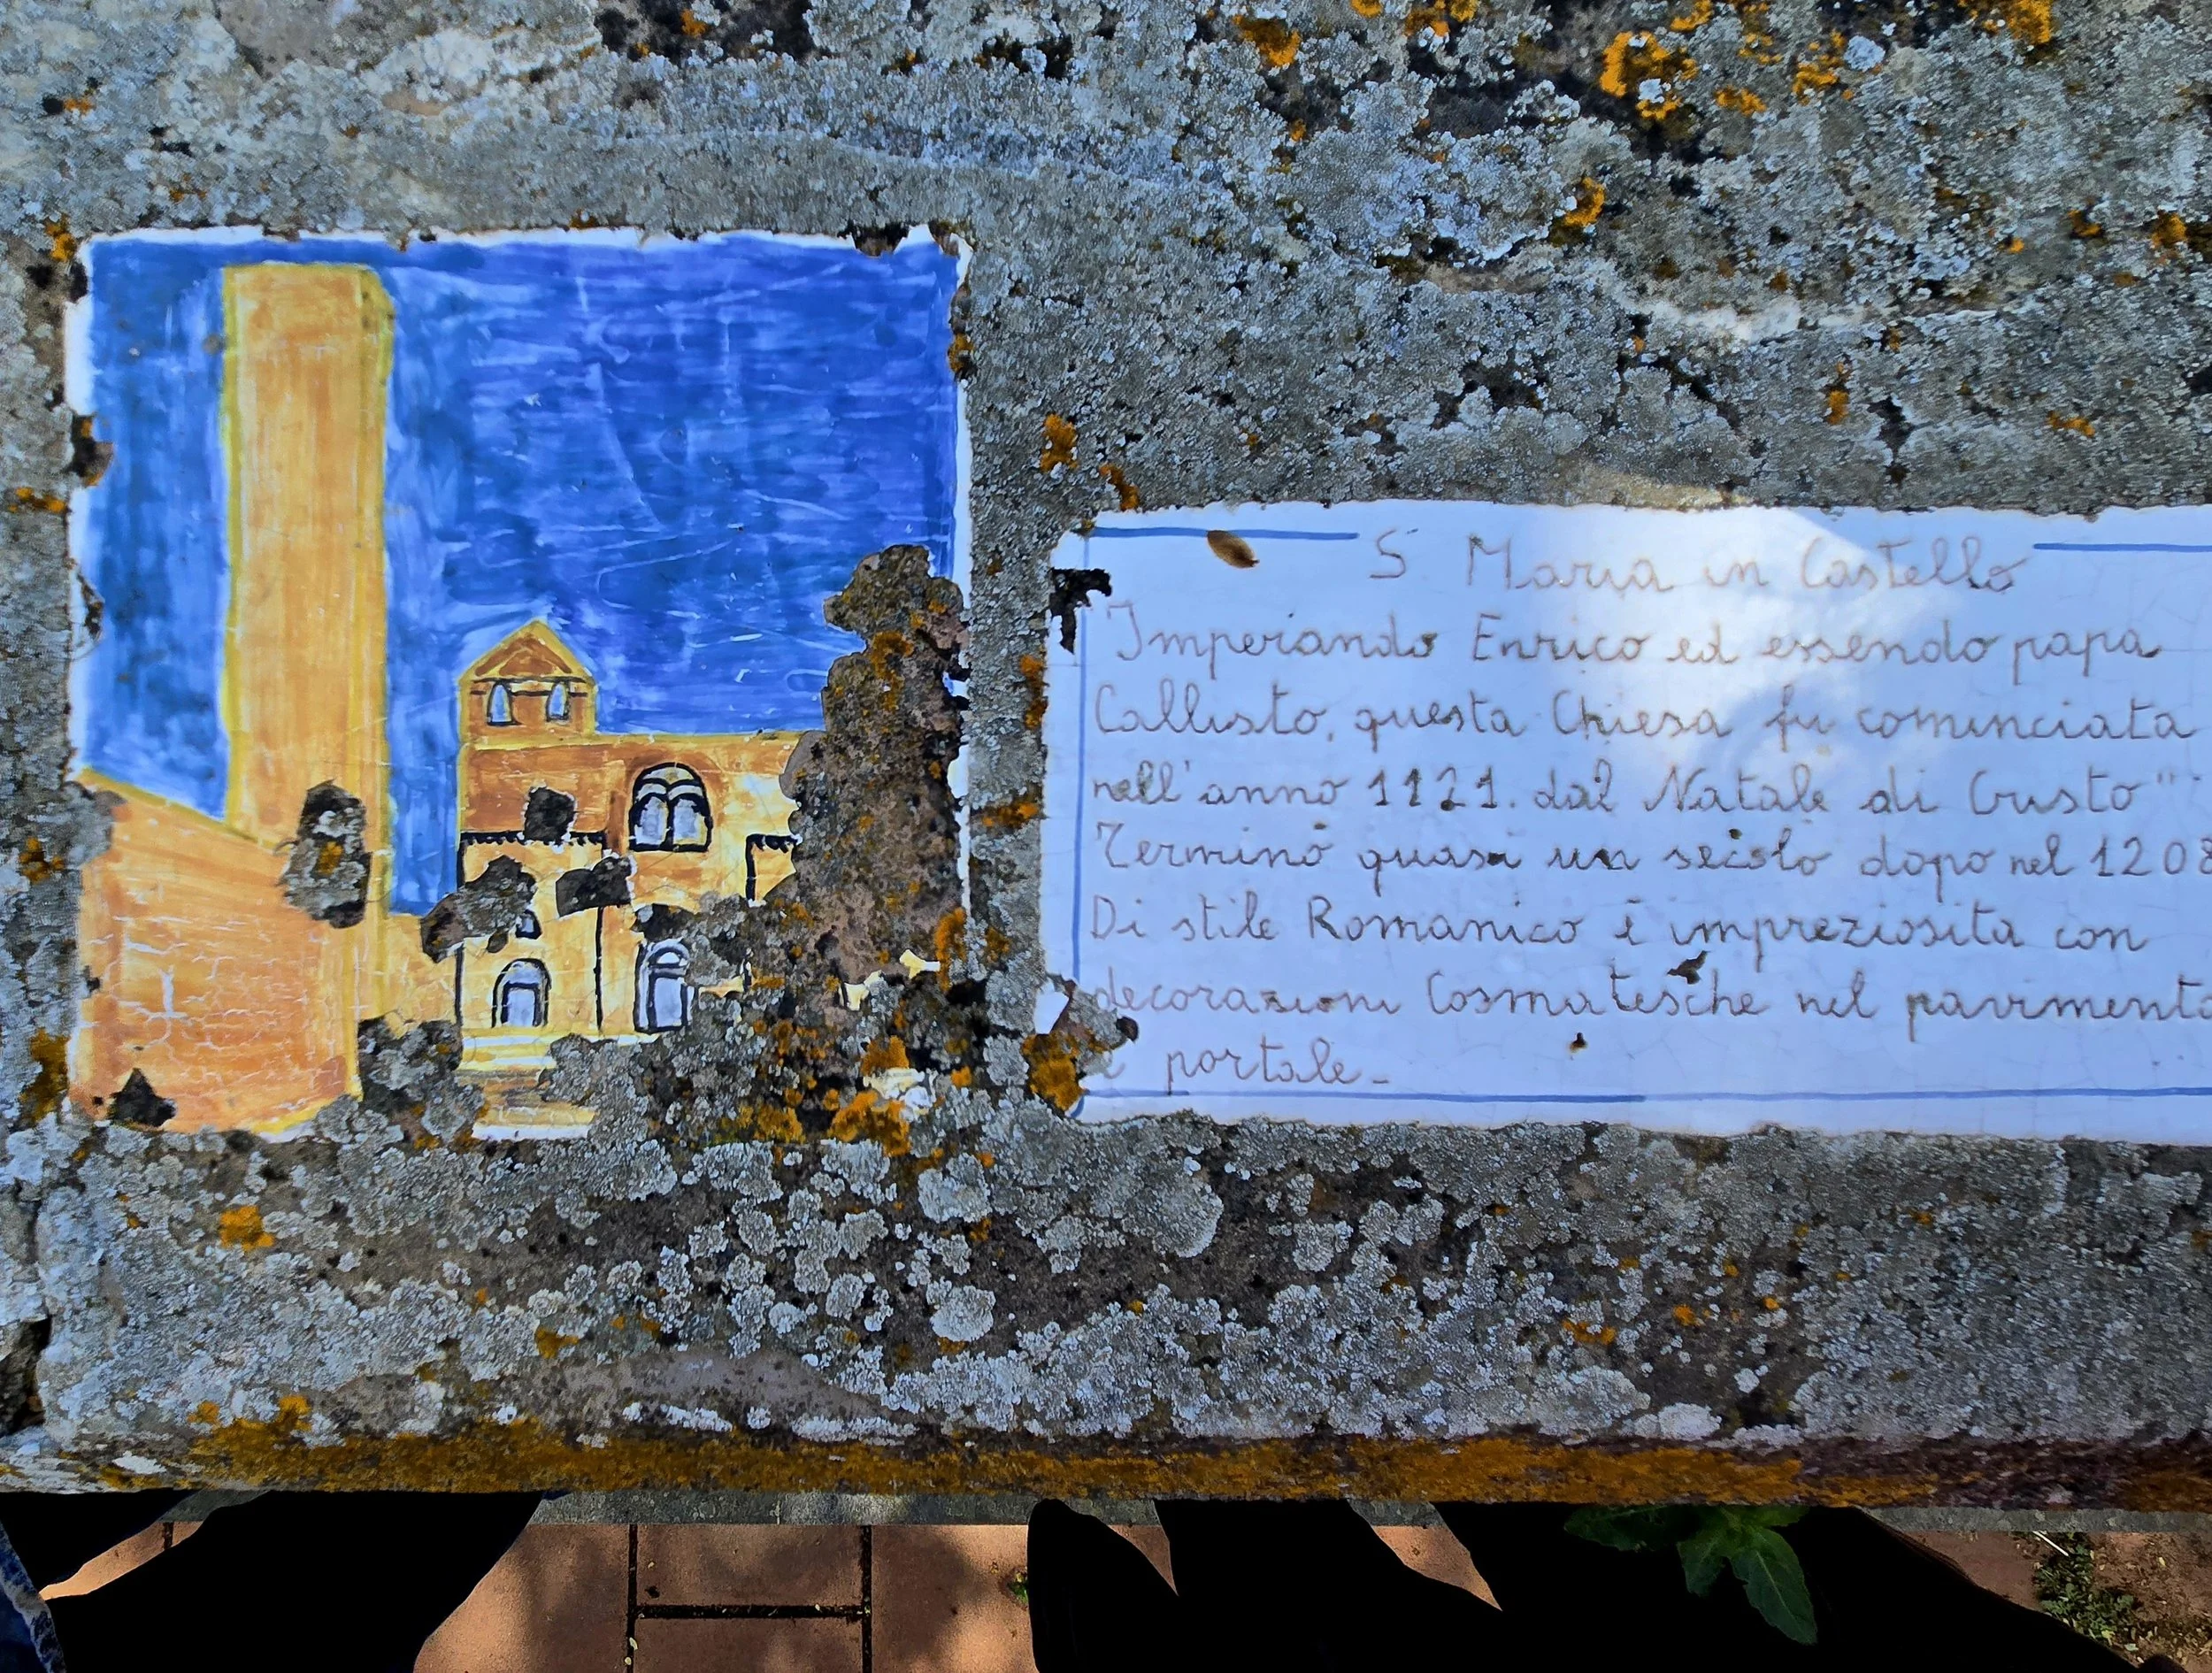 S. Maria in Castello
"Imperando Enrico ed essendo papa
Callisto, questa Chiesa fu cominciata
nell'anno 1121. dal Natale di Cristo"
Terminò quasi un secolo dopo nel 1208
Di stile Romanico è impreziosita con
decorazioni Cosmatesche nel pavimento
e portale_